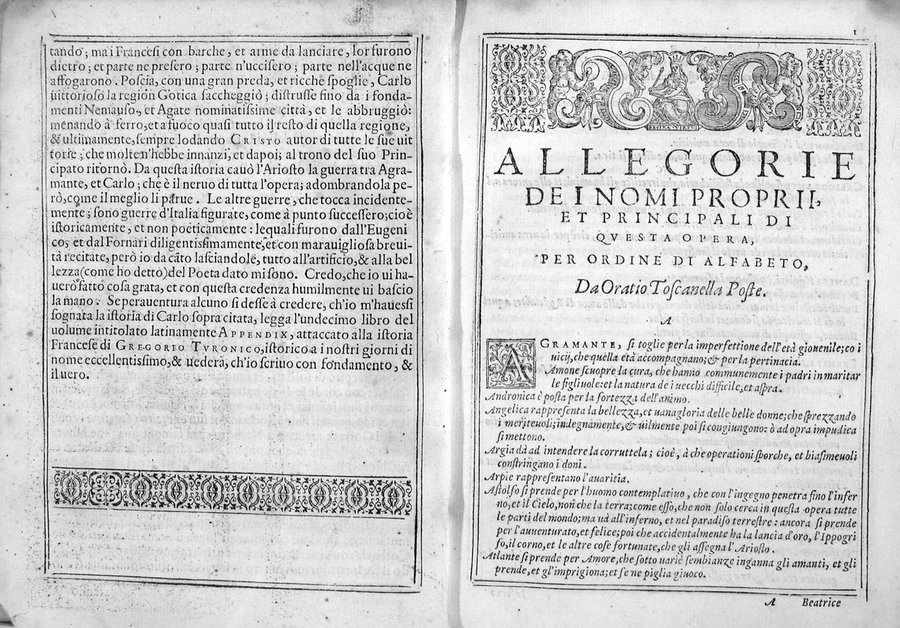 tando; ma i Francesi con barche, et arme da lanciare, lor furono
dietro; et parte ne presero; parte n'uccisero; parte nell'acque ne
affogarono. Poscia, con una gran preda, et ricche spoglie, Carlo
uittorioso la region Gotica saccheggiò; distrusse fino da i fonda-
menti Nemauso, et Agate nominatissime città, et le abbruggiò:
menando à ferro, et a fuoco quasi tutto il resto di quella regione,
& ultimamente, sempre lodando CRISTO autor di tutte le sue uit
torie; che molte n'hebbe innanzi, et dapoi; al trono del suo Prin-
cipato ritornò. Da questa istoria cauò l'Ariosto la guerra tra Agra-
mante, et Carlo; che è il neruo di tutta l'opera; adombrandola pe-
rò, come il meglio li parue. Le altre guerre, che tocca incidente-
mente; sono guerre d'Italia figurate, come à punto successero; cioè
istoricamente, et non poeticamente: lequali furono dall'Eugeni
co, et dal Fornari diligentissimamente, et con marauigliosa breui-
tà recitate, però io da cāto lasciandole, tutto all'artificio, & alla bel
lezza (come ho detto) del Poeta dato mi sono. Credo, che io ui ha-
uerò fatto cosa grata, et con questa credenza humilmente ui bascio
la mano. Se perauentura alcuno si desse à credere, ch'io m'hauessi
sognata la istoria di Carlo sopra citata, legga l'undecimo libro del
volume intitolato latinamente APPENDIX, attaccato alla istoria
Francese di GREGORIO TVRONICO, istorico a i nostri giorni di
nome eccellentissimo, & uederà, ch'io scriuo con fondamento, &
il uero.
1
ALLEGORIE
DE I NOMI PROPRII,
ET PRINCIPALI DI
QVESTA OPERA,
PER ORDINE DI ALFABETO,
Da Oratio Toscanella Poste.
A
AGRAMANTE, si toglie per la imperfettione dell'età giouenile; co i
uicij, che quella età accompagnano; & per la pertinacia.
Amone scuopre la cura, che hanno communemente i padri in maritar
le figliuole: et la natura de i uecchi difficile, et aspra.
Andronica è posta per la fortezza dell'animo.
Angelica rappresenta la bellezza, et uanagloria delle belle donne; che sprezzando
i meriteuoli; indegnamente, & uilmente poi si congiungono: ò ad opra impudica
si mettono.
Argia dà ad intendere la corruttela; cioè, à che operationi sporche, et biasimeuoli
constringano i doni.
Arpie rappresentano l'auaritia.
Astolfo si prende per l'huomo contemplatiuo, che con l'ingegno penetra fino l'infer
no, et il Cielo, non che la terra; come esso, che non solo cerca in questa opera tutte
le parti del mondo; ma uà all'inferno, et nel paradiso terrestre: ancora si prende
per l'auuenturato, et felice; poi che accidentalmente ha la lancia d'oro, l'Ippogri
fo, il corno, et le altre cose fortunate, che gli assegna l'Ariosto.
Atlante si prende per Amore, che sotto uarie sembianze inganna gli amanti, et gli
prende, et gl'imprigiona; et se ne piglia giuoco.
A Beatrice